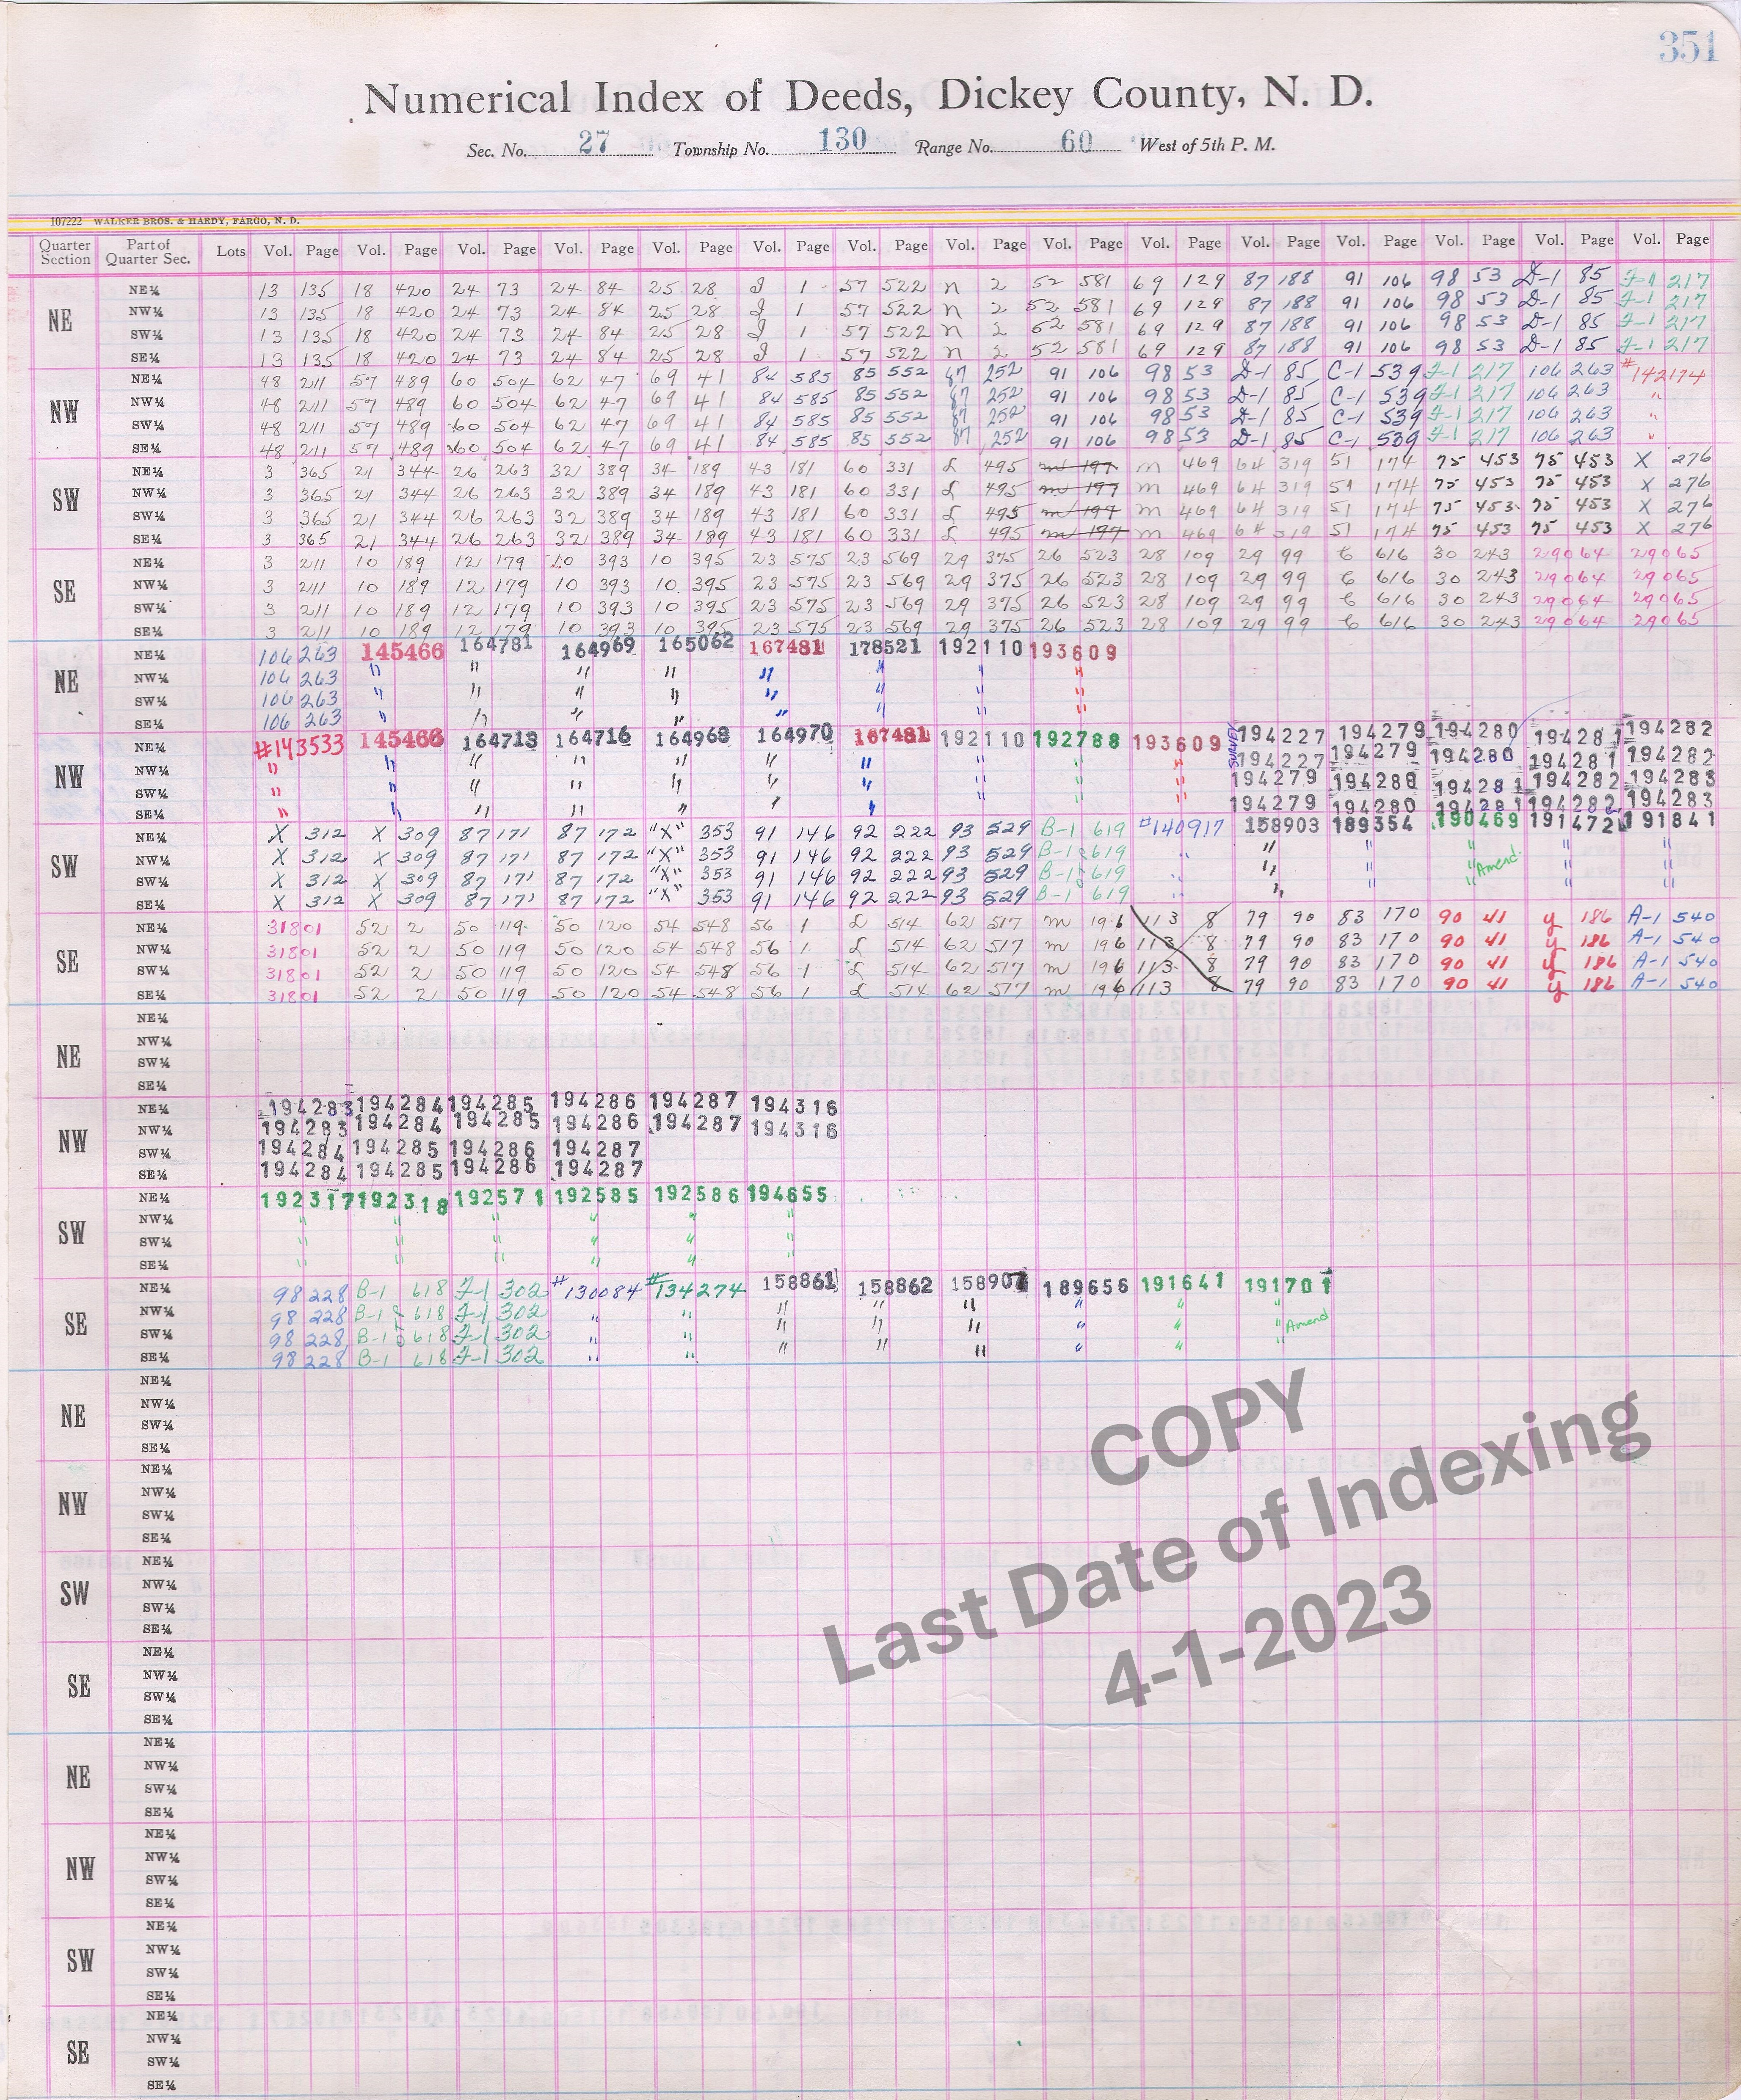 351
Numerical Index of Deeds, Dickey County, N. D.
Sec. No. 27 Township No. 130 Range No. 60 West of 5th P. M.
107222 WALKER BROS. & HARDY, FARGO, N. D.
Quarter Section Part of Quarter Sec. Lots Vol. Page Vol. Page Vol. Page Vol. Page Vol. Page Vol. Page Vol. Page Vol. Page Vol. Page Vol. Page Vol. Page Vol. Page Vol. Page Vol. Page Vol. Page
NE
NE¼ 13 135 18 420 24 73 24 84 25 28 J 1 57 522 n 2 52 581 69 129 87 188 91 106 98 53 D-1 85 F-1 217
NW¼ 13 135 18 420 24 73 24 84 25 28 J 1 57 522 n 2 52 581 69 129 87 188 91 106 98 53 D-1 85 F-1 217
SW¼ 13 135 18 420 24 73 24 84 25 28 J 1 57 522 n 2 52 581 69 129 87 188 91 106 98 53 D-1 85 F-1 217
SE¼ 13 135 18 420 24 73 24 84 25 28 J 1 57 522 n 2 52 581 69 129 87 188 91 106 98 53 D-1 85 F-1 217
NW
NE¼ 48 211 57 489 60 504 62 47 69 41 84 585 85 552 87 252 91 106 98 53 D-1 85 C-1 539 F-1 217 106 263 #142174
NW¼ 48 211 57 489 60 504 62 47 69 41 84 585 85 552 87 252 91 106 98 53 D-1 85 C-1 539 F-1 217 106 263 "
SW¼ 48 211 57 489 60 504 62 47 69 41 84 585 85 552 87 252 91 106 98 53 D-1 85 C-1 539 F-1 217 106 263 "
SE¼ 48 211 57 489 60 504 62 47 69 41 84 585 85 552 87 252 91 106 98 53 D-1 85 C-1 539 F-1 217 106 263 "
SW
NE¼ 3 365 21 344 26 263 32 389 34 189 43 181 60 331 L 495 m 197 m 469 64 319 51 174 75 453 75 453 X 276
NW¼ 3 365 21 344 26 263 32 389 34 189 43 181 60 331 L 495 m 197 m 469 64 319 51 174 75 453 75 453 X 276
SW¼ 3 365 21 344 26 263 32 389 34 189 43 181 60 331 L 495 m 197 m 469 64 319 51 174 75 453 75 453 X 276
SE¼ 3 365 21 344 26 263 32 389 34 189 43 181 60 331 L 495 m 197 m 469 64 319 51 174 75 453 75 453 X 276
SE
NE¼ 3 211 10 189 12 179 10 393 10 395 23 575 23 569 29 375 26 523 28 109 29 99 616 30 243 29064 29065
NW¼ 3 211 10 189 12 179 10 393 10 395 23 575 23 569 29 375 26 523 28 109 29 99 616 30 243 29064 29065
SW¼ 3 211 10 189 12 179 10 393 10 395 23 575 23 569 29 375 26 523 28 109 29 99 616 30 243 29064 29065
SE¼ 3 211 10 189 12 179 10 393 10 395 23 575 23 569 29 375 26 523 28 109 29 99 616 30 243 29064 29065
NE
NE¼ 106 263 145466 164781 164969 165062 167481 178521 192110 193609
NW¼ 106 263 " " " " " " " "
SW¼ 106 263 " " " " " " " "
SE¼ 106 263 " " " " " " " "
NW
NE¼ #143533 145466 164713 164716 164968 164970 167481 192110 192788 193609 SURVEY 194227 194279 194280 194281 194282
NW¼ " " " " " " " " " " 194227 194279 194280 194281 194282
SW¼ " " " " " " " " " " 194279 194280 194281 194282 194283
SE¼ " " " " " " " " " " 194279 194280 194281 194282 194283
SW
NE¼ X 312 X 309 87 171 87 172 "X" 353 91 146 92 222 93 529 B-1 619 #140917 158903 189354 190469 191472 191841
NW¼ X 312 X 309 87 171 87 172 "X" 353 91 146 92 222 93 529 B-1 619 " " " " " "
SW¼ X 312 X 309 87 171 87 172 "X" 353 91 146 92 222 93 529 B-1 619 " " " " Amend. " "
SE¼ X 312 X 309 87 171 87 172 "X" 353 91 146 92 222 93 529 B-1 619
SE
NE¼ 31801 52 2 50 119 50 120 54 548 56 1 L 514 62 517 m 196 113 8 79 90 83 170 90 41 y 186 A-1 540
NW¼ 31801 52 2 50 119 50 120 54 548 56 1 L 514 62 517 m 196 113 8 79 90 83 170 90 41 y 186 A-1 540
SW¼ 31801 52 2 50 119 50 120 54 548 56 1 L 514 62 517 m 196 113 8 79 90 83 170 90 41 y 186 A-1 540
SE¼ 31801 52 2 50 119 50 120 54 548 56 1 L 514 62 517 m 196 113 8 79 90 83 170 90 41 y 186 A-1 540
NE
NE¼
NW¼
SW¼
SE¼
NW
NE¼ 194283 194284 194285 194286 194287 194316
NW¼ 194283 194284 194285 194286 194287 194316
SW¼ 194284 194285 194286 194287
SE¼ 194284 194285 194286 194287
SW
NE¼ 192317 192318 192571 192585 192586 194655
NW¼ " " " " " "
SW¼ " " " " " "
SE¼ " " " " " "
SE
NE¼ 98 228 B-1 618 F-1 302 #130084 #134274 158861 158862 158907 189656 191641 191701
NW¼ 98 228 B-1 618 F-1 302 " " " " " " " "
SW¼ 98 228 B-1 618 F-1 302 " " " " " " " " Amend
SE¼ 98 228 B-1 618 F-1 302 " " " " " " "
NE
NE¼
NW¼
SW¼
SE¼
NW
NE¼
NW¼
SW¼
SE¼
SW
NE¼
NW¼
SW¼
SE¼
SE
NE¼
NW¼
SW¼
SE¼
COPY
Last Date of Indexing
4-1-2023
NE
NE¼
NW¼
SW¼
SE¼
NW
NE¼
NW¼
SW¼
SE¼
SW
NE¼
NW¼
SW¼
SE¼
SE
NE¼
NW¼
SW¼
SE¼